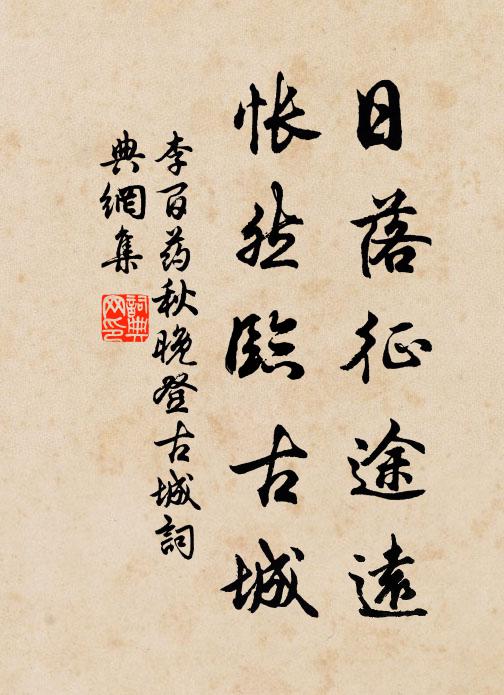 日落征途遠
悵然臨古城
李百药秋晚登古城詞
典網集
詞典网印